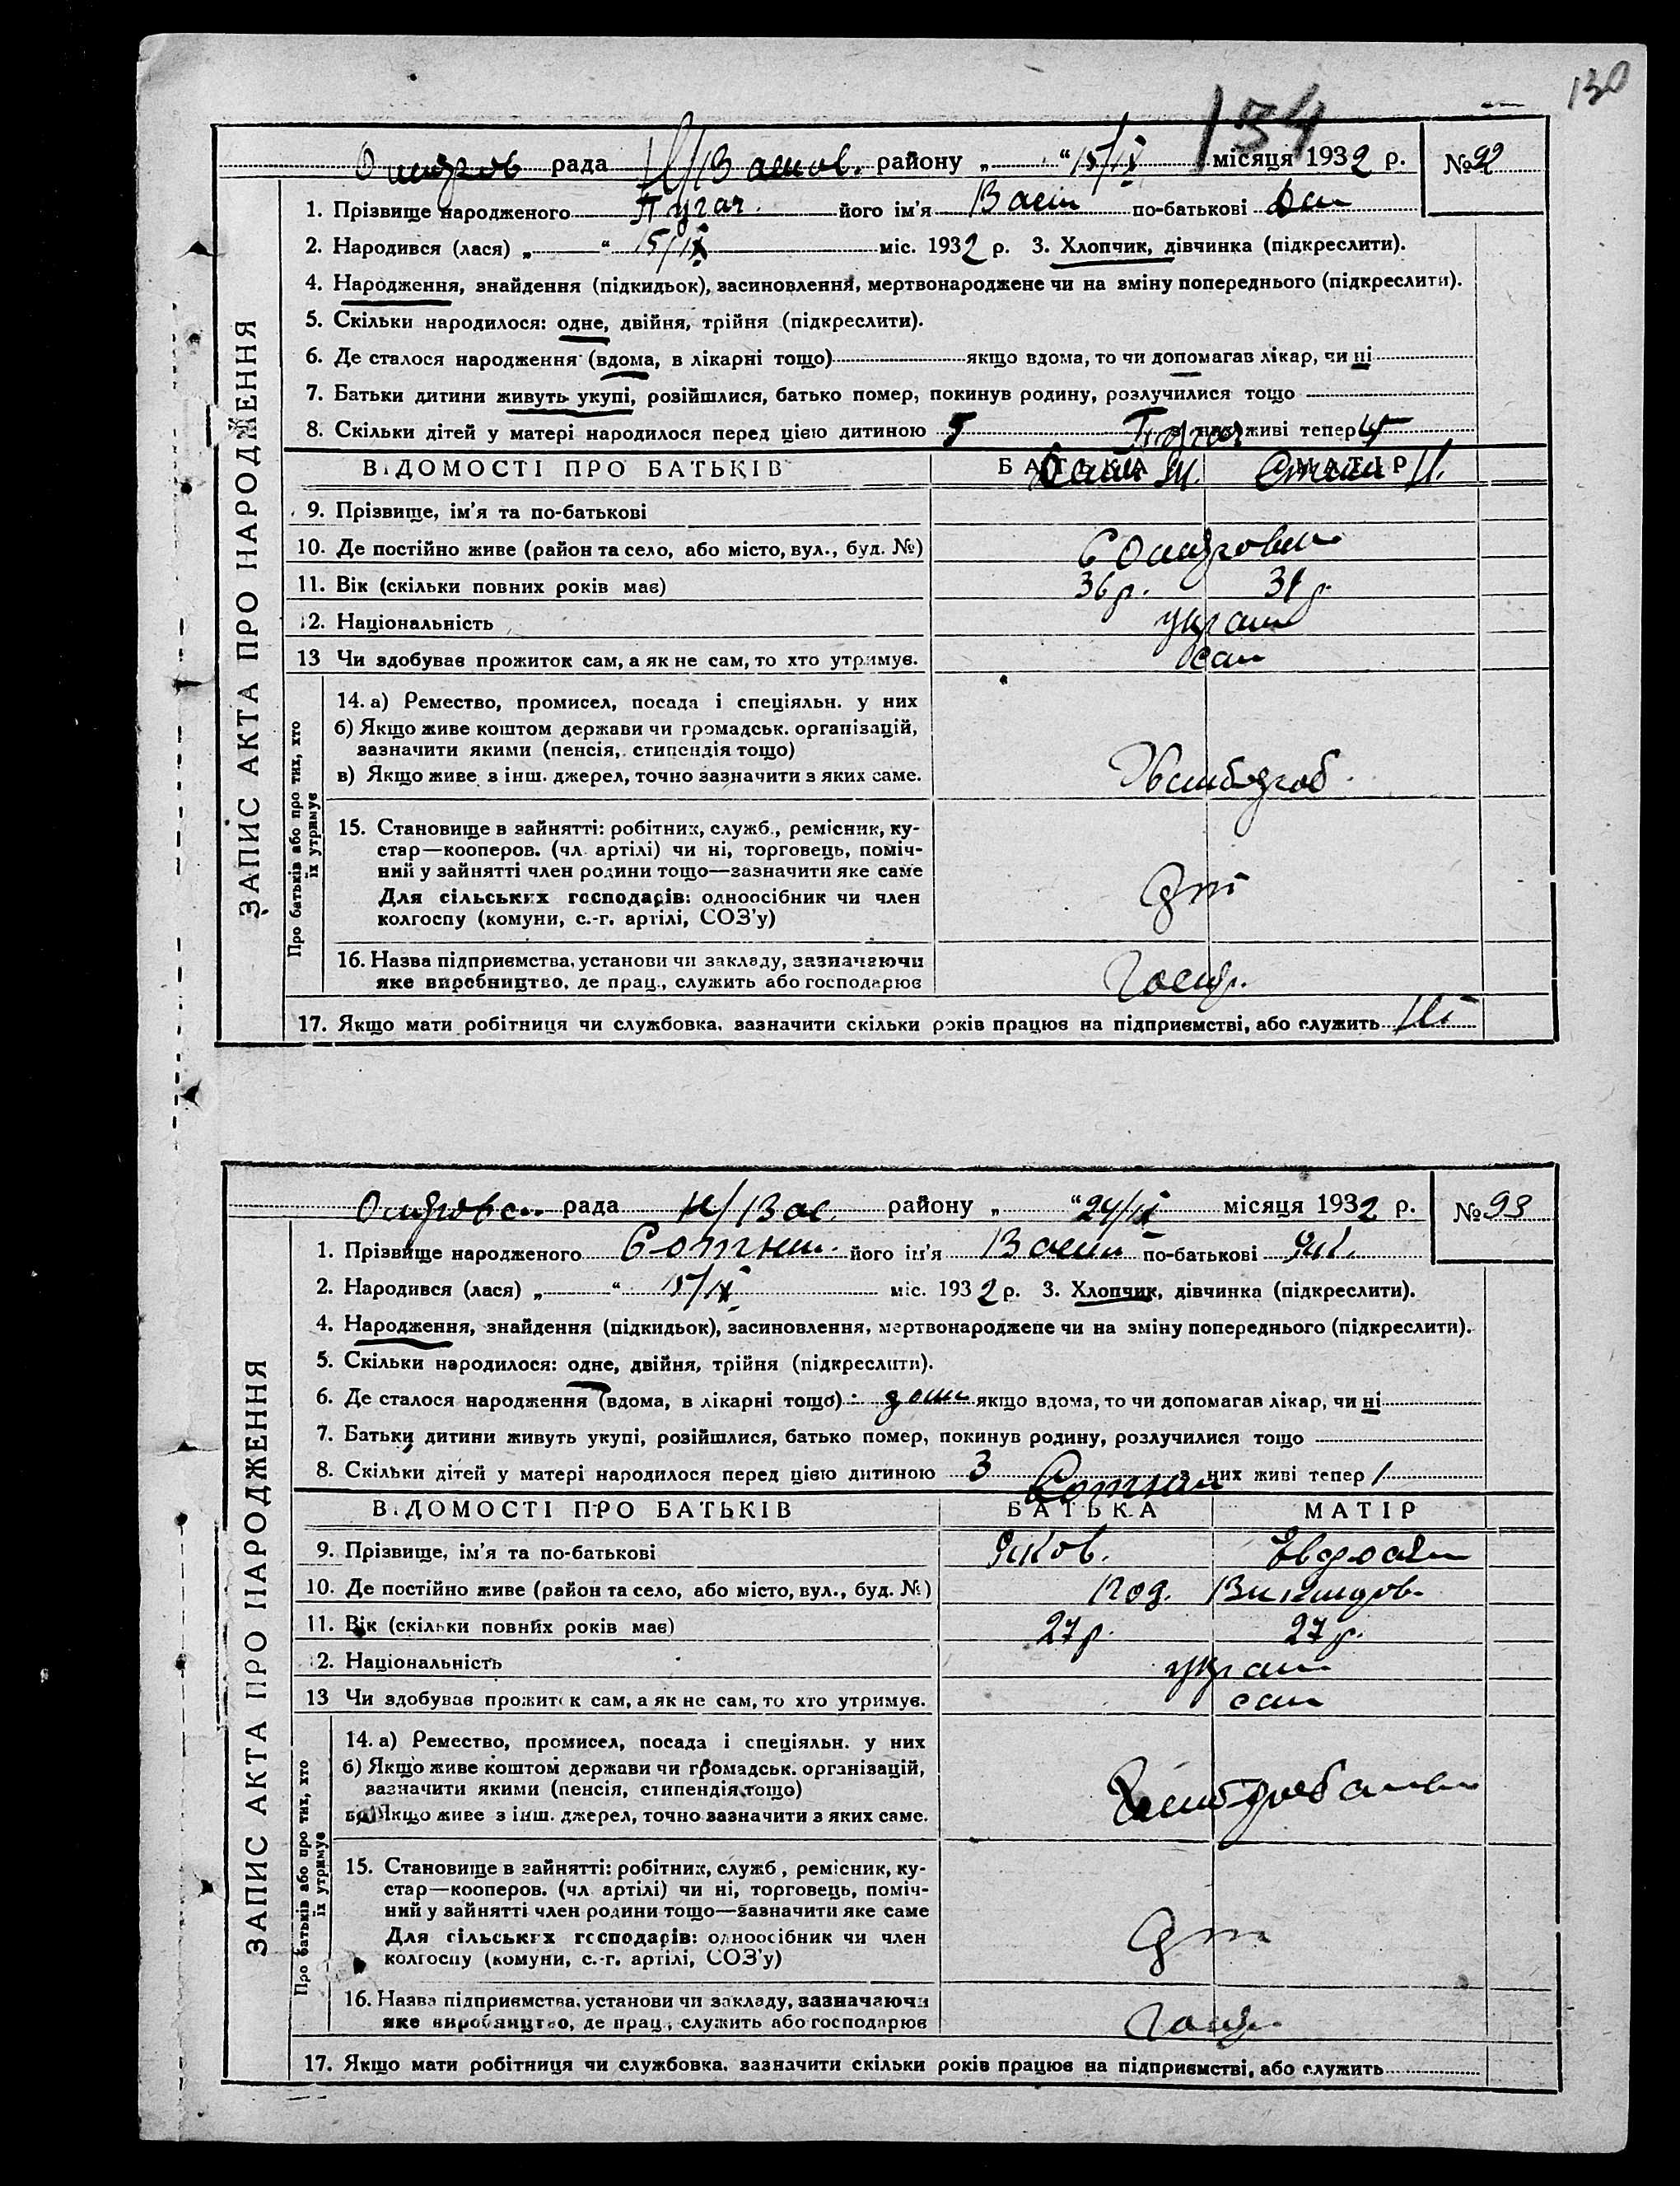 130
134
рада Н/Васил. району „ “ 15/IX місяця 1932 р. № 92
1. Прізвище народженого Пугач його ім'я Васіл по-батькові Дан
2. Народився (лася) „ “ 15/IX міс. 1932 р. 3. Хлопчик, дівчинка (підкреслити).
4. Народження, знайдення (підкидьок), засиновлення, мертвонароджене чи на зміну попереднього (підкреслити).
5. Скільки народилося: одне, двійня, трійня (підкреслити).
6. Де сталося народження (вдома, в лікарні тощо) якщо вдома, то чи допомагав лікар, чи ні
7. Батьки дитини живуть укупі, розійшлися, батько помер, покинув родину, розлучилися тощо
8. Скільки дітей у матері народилося перед цією дитиною 5 з них живі тепер 4
Пугач
ВІДОМОСТІ ПРО БАТЬКІВ БАТЬКА МАТІР
9. Прізвище, ім'я та по-батькові
10. Де постійно живе (район та село, або місто, вул., буд. №)
11. Вік (скільки повних років має) 36 р. 31 р.
12. Національність украї
13 Чи здобував прожиток сам, а як не сам, то хто утримує. сам
14. а) Ремество, промисел, посада і спеціяльн. у них
б) Якщо живе коштом держави чи громадськ. організацій,
зазначити якими (пенсія, стипендія тощо)
в) Якщо живе з інш. джерел, точно зазначити з яких саме.
15. Становище в зайнятті: робітник, служб., ремісник, ку-
стар—кооперов. (чл. артілі) чи ні, торговець, поміч-
ний у зайнятті член родини тощо—зазначити яке саме
Для сільських господарів: одноосібник чи член
колгоспу (комуни, с.-г. артілі, СОЗ'у)
16. Назва підприємства, установи чи закладу, зазначаючи
яке виробництво, де прац., служить або господарює
17. Якщо мати робітниця чи службовка, зазначити скільки років працює на підприємстві, або служить Ні
ЗАПИС АКТА ПРО НАРОДЖЕННЯ
Про батьків або про тих, хто
їх утримує
рада Н/Вас. району „ “ 24/IX місяця 1932 р. № 93
1. Прізвище народженого Сотни його ім'я Васіл по-батькові Як.
2. Народився (лася) „ “ 15/IX міс. 1932 р. 3. Хлопчик, дівчинка (підкреслити).
4. Народження, знайдення (підкидьок), засиновлення, мертвонароджене чи на зміну попереднього (підкреслити).
5. Скільки народилося: одне, двійня, трійня (підкреслити).
6. Де сталося народження (вдома, в лікарні тощо) дома якщо вдома, то чи допомагав лікар, чи ні
7. Батьки дитини живуть укупі, розійшлися, батько помер, покинув родину, розлучилися тощо
8. Скільки дітей у матері народилося перед цією дитиною 3 з них живі тепер 1
ВІДОМОСТІ ПРО БАТЬКІВ БАТЬКА МАТІР
9. Прізвище, ім'я та по-батькові Яков.
10. Де постійно живе (район та село, або місто, вул., буд. №)
11. Вік (скільки повних років має) 27 р. 27 р.
12. Національність украї
13 Чи здобував прожиток сам, а як не сам, то хто утримує. сам
14. а) Ремество, промисел, посада і спеціяльн. у них
б) Якщо живе коштом держави чи громадськ. організацій,
зазначити якими (пенсія, стипендія тощо)
в) Якщо живе з інш. джерел, точно зазначити з яких саме.
15. Становище в зайнятті: робітник, служб., ремісник, ку-
стар—кооперов. (чл. артілі) чи ні, торговець, поміч-
ний у зайнятті член родини тощо—зазначити яке саме
Для сільських господарів: одноосібник чи член
колгоспу (комуни, с.-г. артілі, СОЗ'у)
16. Назва підприємства, установи чи закладу, зазначаючи
яке виробництво, де прац., служить або господарює
17. Якщо мати робітниця чи службовка, зазначити скільки років працює на підприємстві, або служить
ЗАПИС АКТА ПРО НАРОДЖЕННЯ
Про батьків або про тих, хто
їх утримує